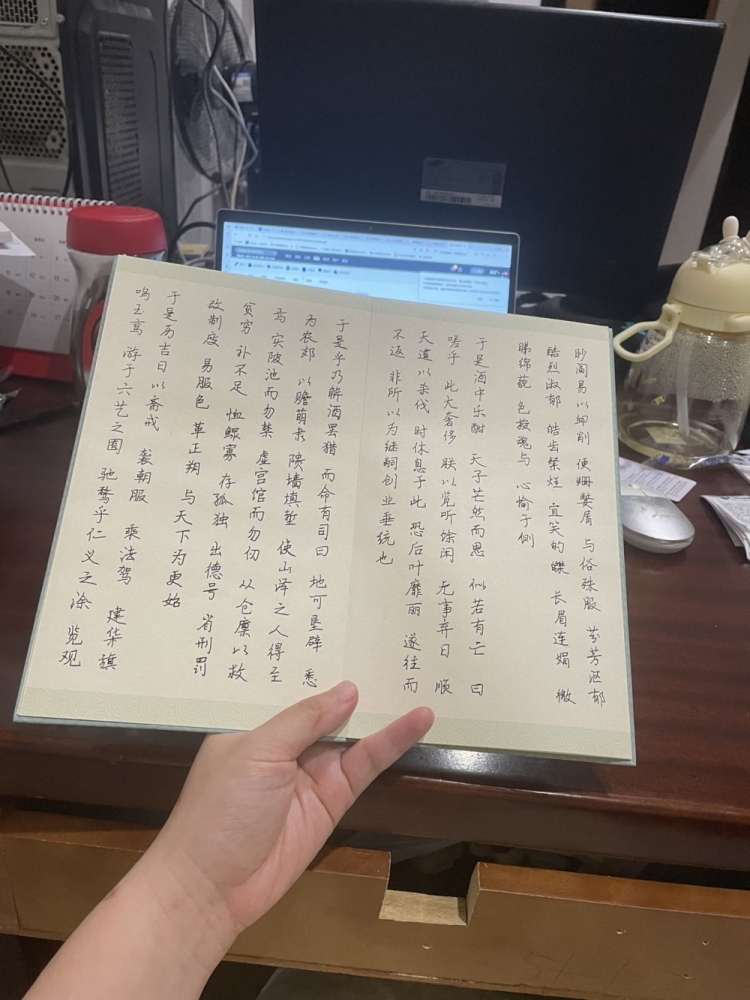 眇阎易以卹削 便姗嫳屑 与俗殊服 芬芳沤郁
酷烈淑郁 皓齿粲烂 宜笑的皪 长眉连娟 微
睇绵藐 色授魂与 心愉于侧
于是酒中乐酣 天子芒然而思 似若有亡 曰
嗟乎 此大奢侈 朕以览听馀闲 无事弃日 顺
天道以杀伐 时休息于此 恐后叶靡丽 遂往而
不返 非所以为继嗣创业垂统也
于是乎乃解酒罢猎 而命有司曰 地可垦辟 悉
为农郊 以赡萌隶 隤墙填堑 使山泽之人得至
焉 实陂池而勿禁 虚宫馆而勿仞 从仓廪以救
贫穷 补不足 恤鳏寡 存孤独 出德号 省刑罚
改制度 易服色 革正朔 与天下为更始
于是历吉日以斋戒 袭朝服 乘法驾 建华旗
鸣玉鸾 游于六艺之囿 驰骛乎仁义之涂 览观